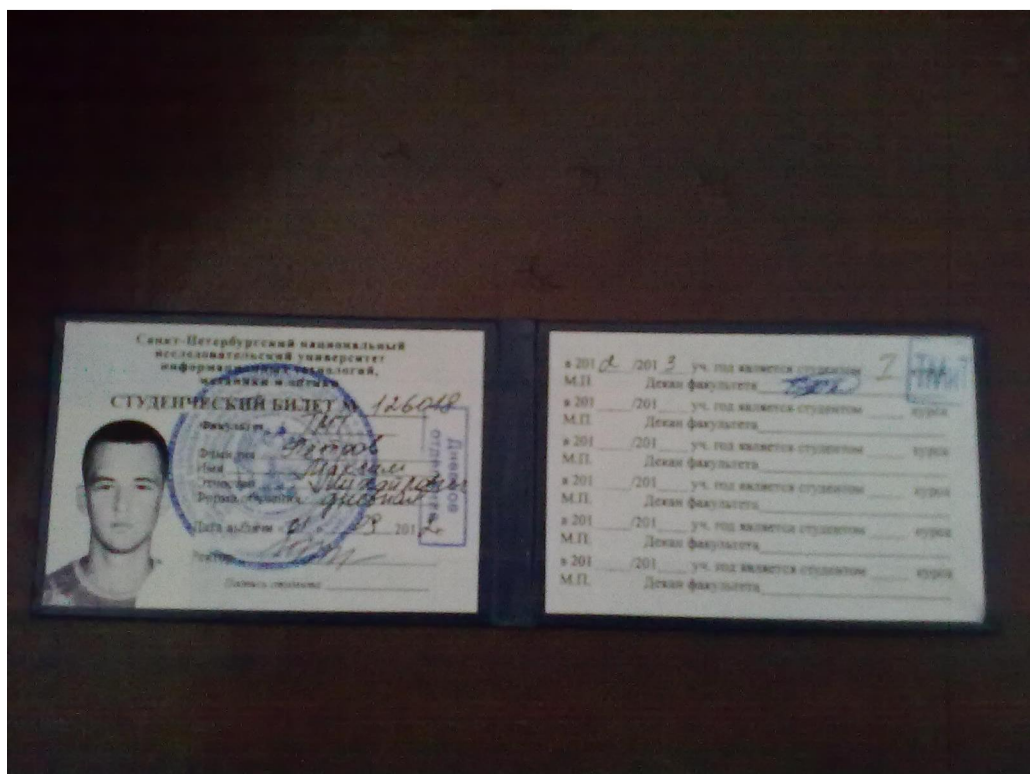 Санкт-Петербургский национальный
исследовательский университет
информационных технологий,
механики и оптики
СТУДЕНЧЕСКИЙ БИЛЕТ № 126018
Факультет
Фамилия
Имя Максим
Отчество
Форма обучения дневная
Дата выдачи 01 09 2012
Ректор
Подпись студента
Дневное
отделение
в 2012/2013 уч. год является студентом I
М.П. Декан факультета
в 201 /201 уч. год является студентом курса
М.П. Декан факультета
в 201 /201 уч. год является студентом курса
М.П. Декан факультета
в 201 /201 уч. год является студентом курса
М.П. Декан факультета
в 201 /201 уч. год является студентом курса
М.П. Декан факультета
в 201 /201 уч. год является студентом курса
М.П. Декан факультета